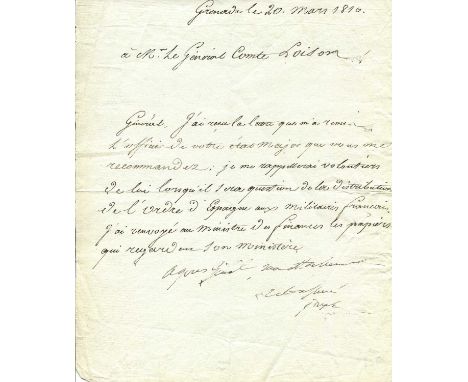 Grenade le 20. Mars 1810.
à Mr. le Général Comte Loison
Général, J'ai reçu la lettre que m'a remis
l'officier de votre état major que vous me
recommandez; je me rappellerai volontiers
de lui lorsqu'il sera question de la distribution
de l'Ordre d'Espagne aux militaires français,
j'ai renvoyé au Ministre des finances les papiers
qui regardent son ministère